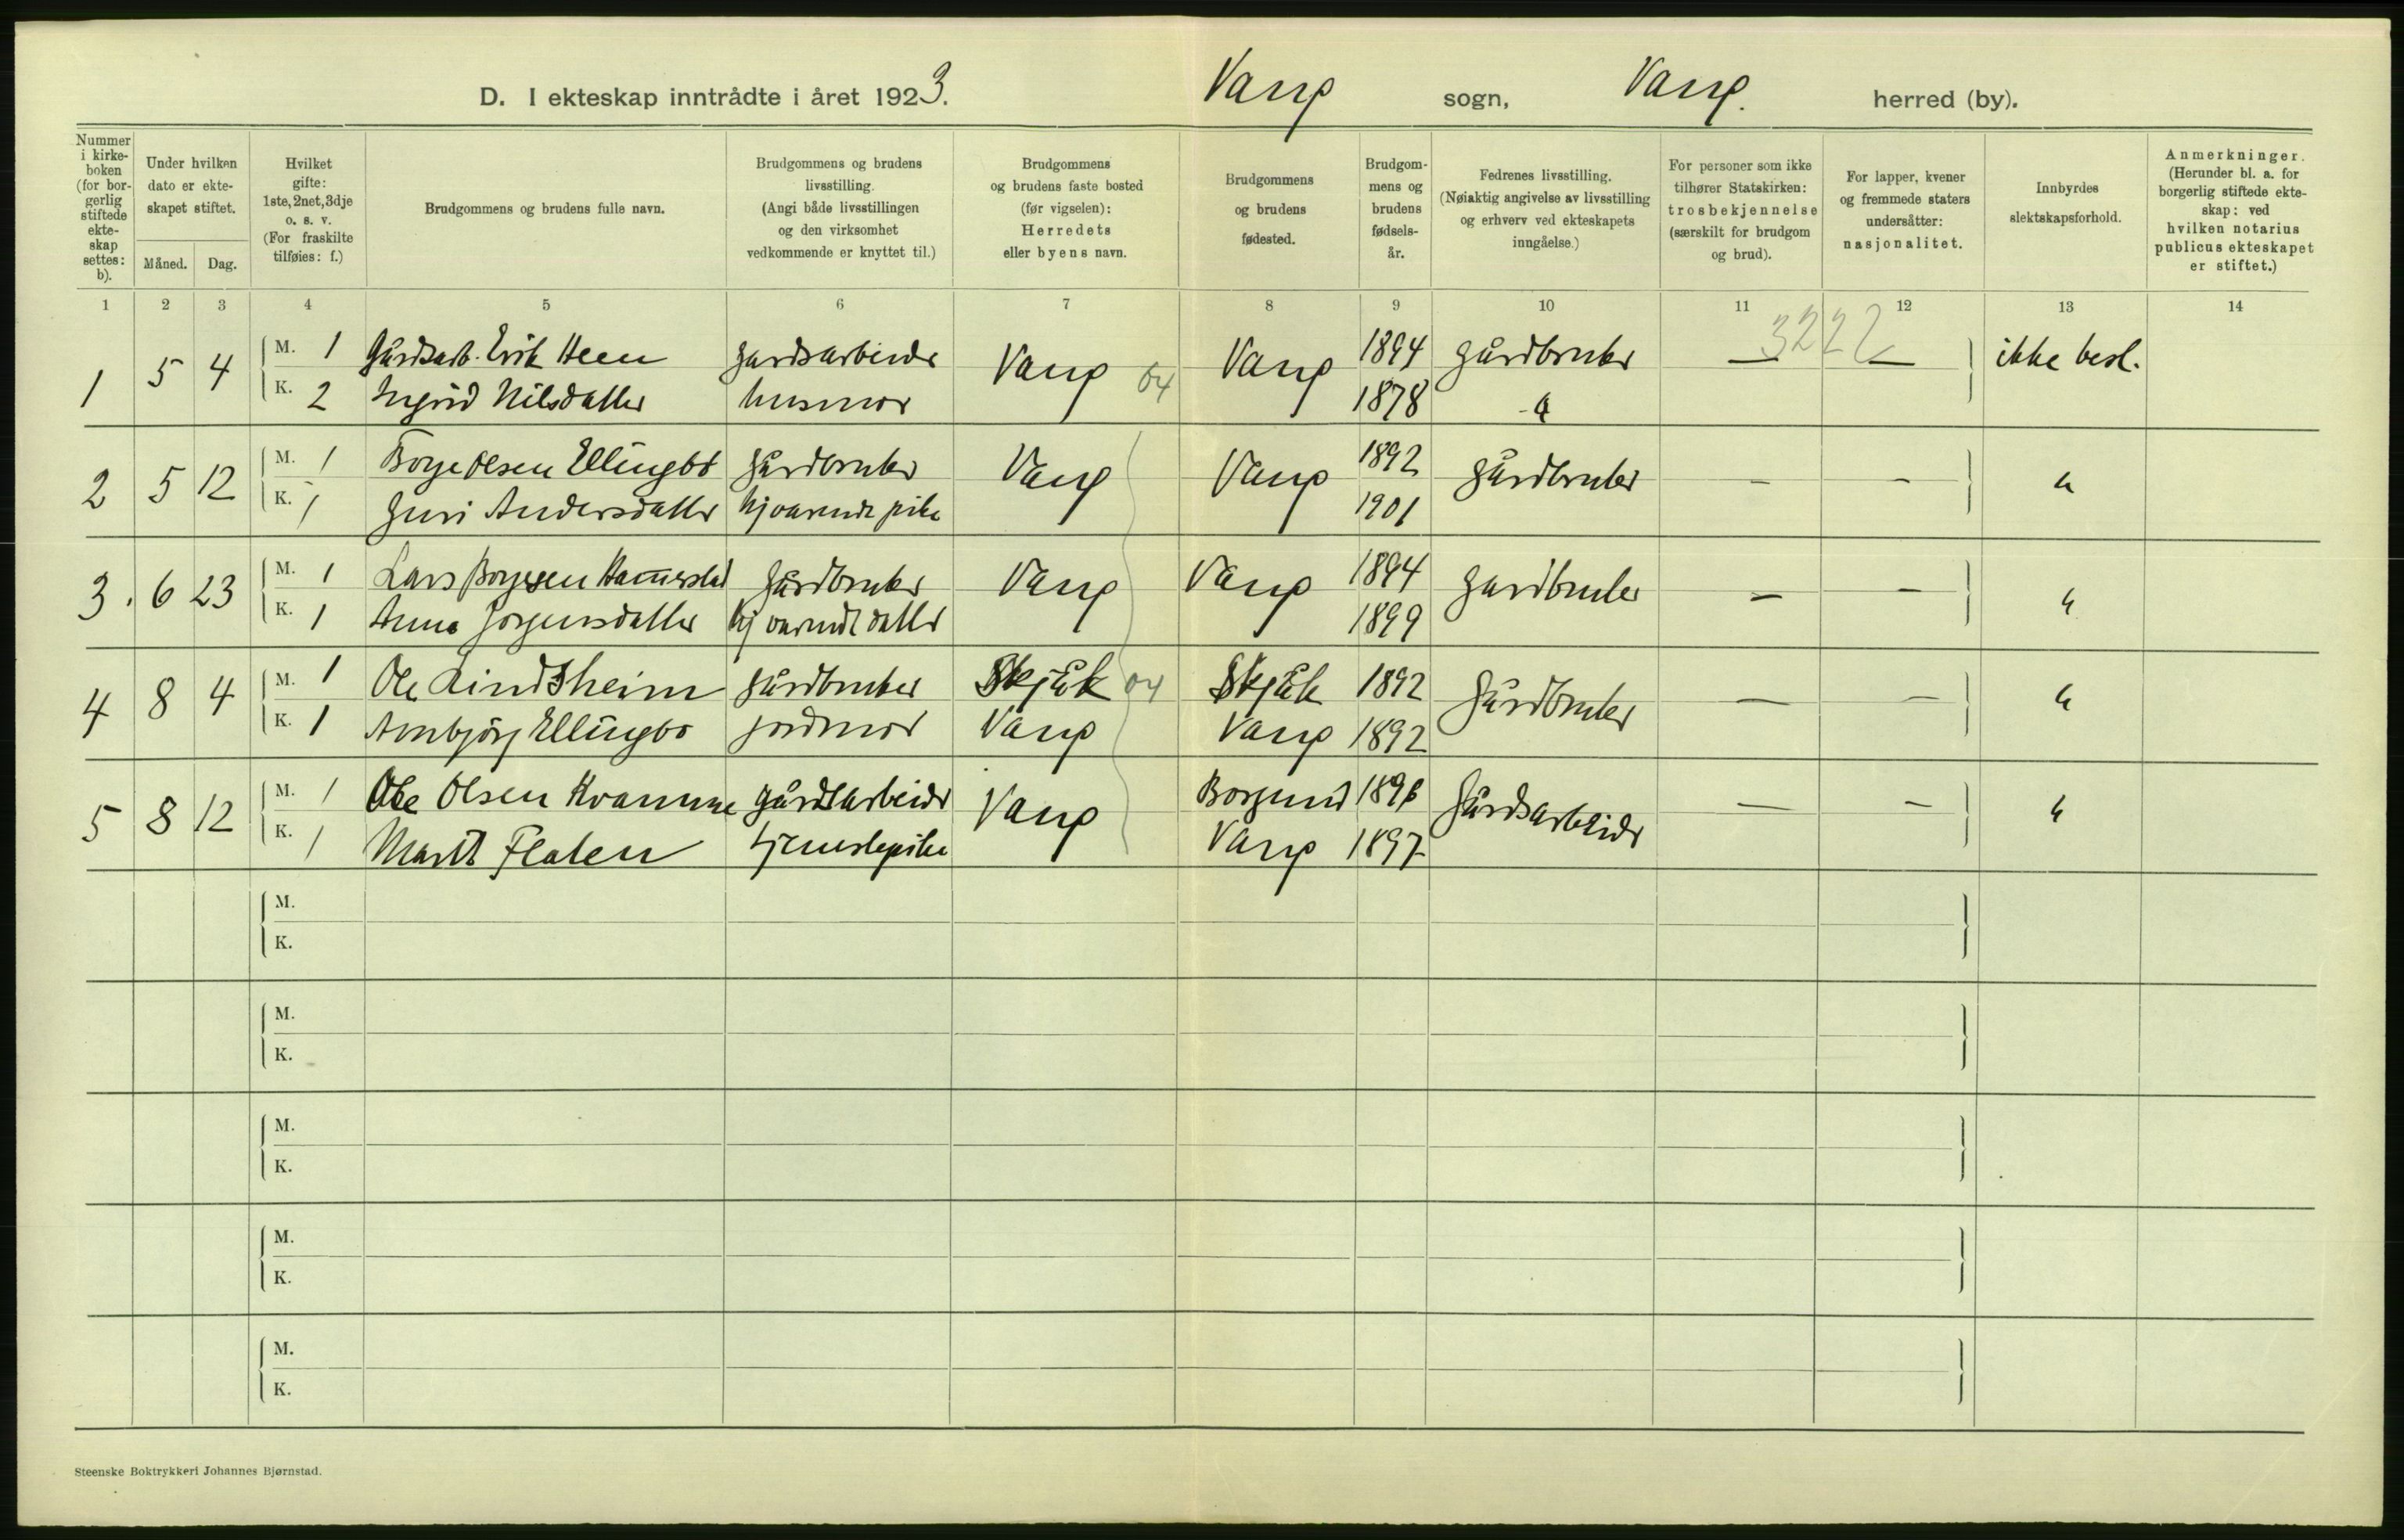 D. I ekteskap inntrådte i året 1923. Vang sogn, Vang. herred (by).
Nummer i kirke- boken (for bor- gerlig stiftede ekte- skap settes: b).
Under hvilken dato er ekte- skapet stiftet.
Måned. Dag.
Hvilket gifte: 1ste, 2net, 3dje o. s. v. (For fraskilte tilføies: f.)
Brudgommens og brudens fulle navn.
Brudgommens og brudens livsstilling. (Angi både livsstillingen og den virksomhet vedkommende er knyttet til.)
Brudgommens og brudens faste bosted (før vigselen): Herredets eller byens navn.
Brudgommens og brudens fødested.
Brudgom- mens og brudens fødsels- år.
Fedrenes livsstilling. (Nøiaktig angivelse av livsstilling og erhverv ved ekteskapets inngåelse.)
For personer som ikke tilhører Statskirken: trosbekjennelse (særskilt for brudgom og brud).
For lapper, kvener og fremmede staters undersåtter: nasjonalitet.
Innbyrdes slektskapsforhold.
Anmerkninger. (Herunder bl. a. for borgerlig stiftede ekte- skap: ved hvilken notarius publicus ekteskapet er stiftet.)
1 2 3 4 5 6 7 8 9 10 11 12 13 14
3222
1 5 4 M. 1 Gårdsarb. Erik Heen gardsarbeider Vang 04 Vang 1894 gårdbruker — — ikke besl.
K. 2 Ingrid Nilsdatter husmor 1878 -"
2 5 12 M. 1 Borge Olsen Ellingbø gårdbruker Vang Vang 1892 gårdbruker - - "
K. 1 Guri Andersdatter hjværende pike 1901
3. 6 23 M. 1 Lars Børgesen Hammerstad gårdbruker Vang Vang 1894 gardbruker - - "
K. 1 Anna Jørgensdatter hjværende datter 1899
4 8 4 M. 1 Ole Lindsheim gårdbruker Skjåk 04 Skjåk 1892 Gårdbruker — — "
K. 1 Arnbjørg Ellingbø jordmor Vang Vang 1892
5 8 12 M. 1 Ole Olsen Kvamme gårdsarbeider Vang Borgund Gårdsarbeider — - "
K. 1 Marit Flaten tjenestepike Vang 1897
M.
K.
M.
K.
M.
K.
M.
K.
M.
K.
Steenske Boktrykkeri Johannes Bjørnstad.